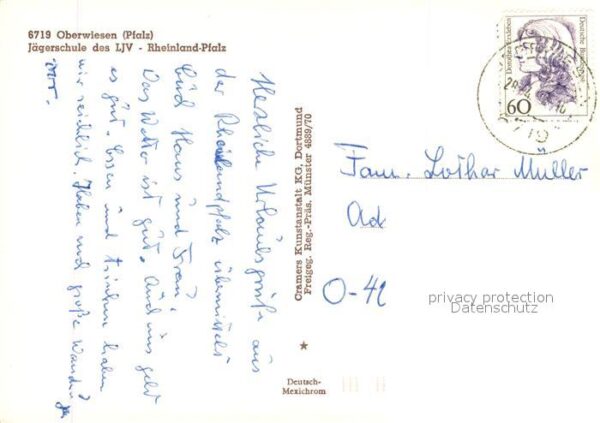 6719 Oberwiesen (Pfalz)
Jägerschule des LJV - Rheinland-Pfalz
Herzliche Urlaubsgrüße aus
der Rheinlandpfalz übermittelt
Euch Hans und Frau.
Das Wetter ist gut. Auch uns geht
es gut. Essen und trinken haben
wir reichlich. Haben auch große
Cramers Kunstanstalt KG, Dortmund
Freigeg. Reg.-Präs. Münster 4889/70
Dorothea Erxleben
Deutsche Bundespost
60
Fam. Lothar Müller
Ad
O-42
privacy protection
Datenschutz
Deutsch-
Mexichrom